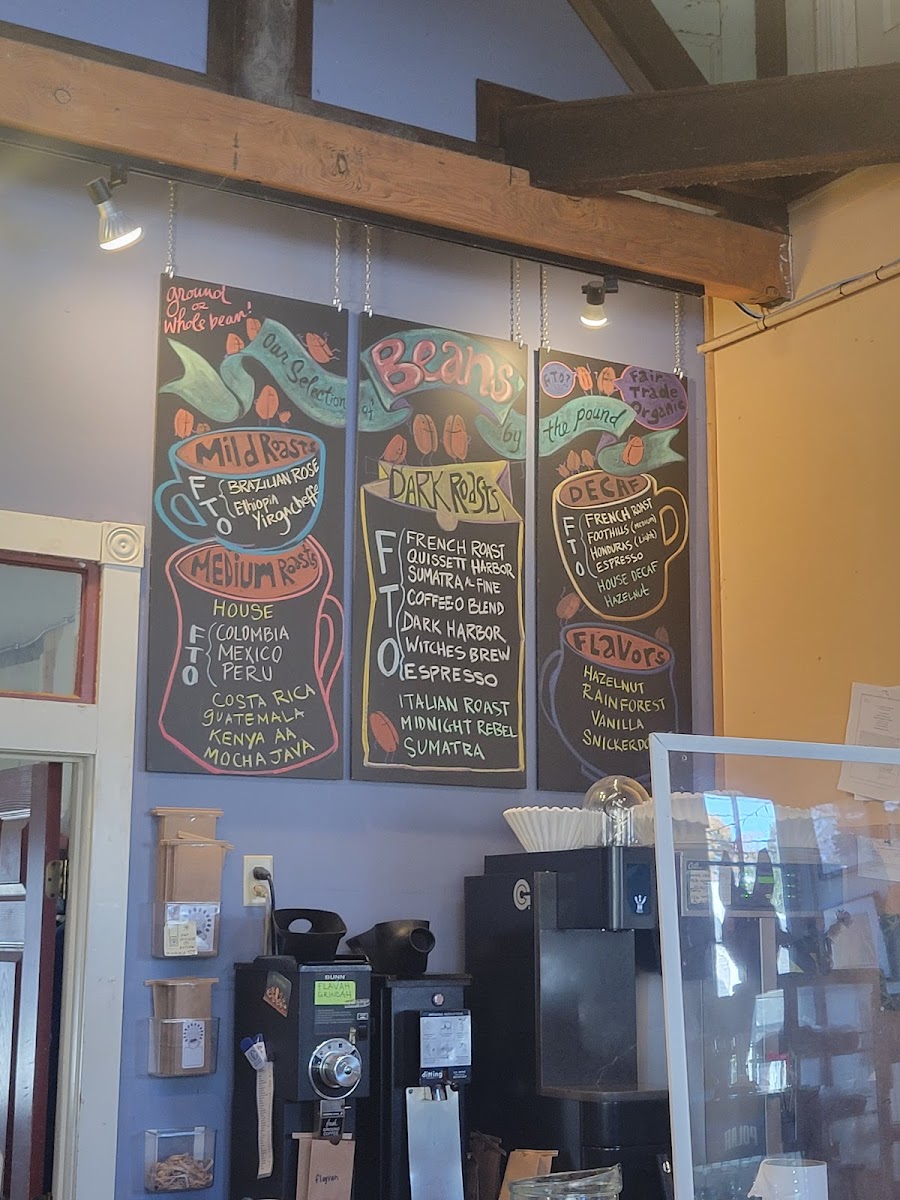 Ground
or
Whole bean!
Our Selection of
Beans
by
the pound
FTO?
Fair
Trade
Organic
Mild Roasts
FTO
BRAZILIAN ROSE
Ethiopia
Yirgacheffe
MEDIUM Roasts
HOUSE
FTO
COLOMBIA
MEXICO
PERU
COSTA RICA
GUATEMALA
KENYA AA
MOCHA JAVA
DARK Roasts
FTO
FRENCH ROAST
QUISSETT HARBOR
SUMATRA
FINE
COFFEE O BLEND
DARK HARBOR
WITCHES BREW
ESPRESSO
ITALIAN ROAST
MIDNIGHT REBEL
SUMATRA
DECAF
FTO
FRENCH ROAST
FOOTHILLS (MEDIUM)
HONDURAS (Light)
ESPRESSO
HOUSE DECAF
HAZELNUT
FLAVORS
HAZELNUT
RAINFOREST
VANILLA
SNICKERDO
BUNN
FLAVAH
GRINDAH
ditting